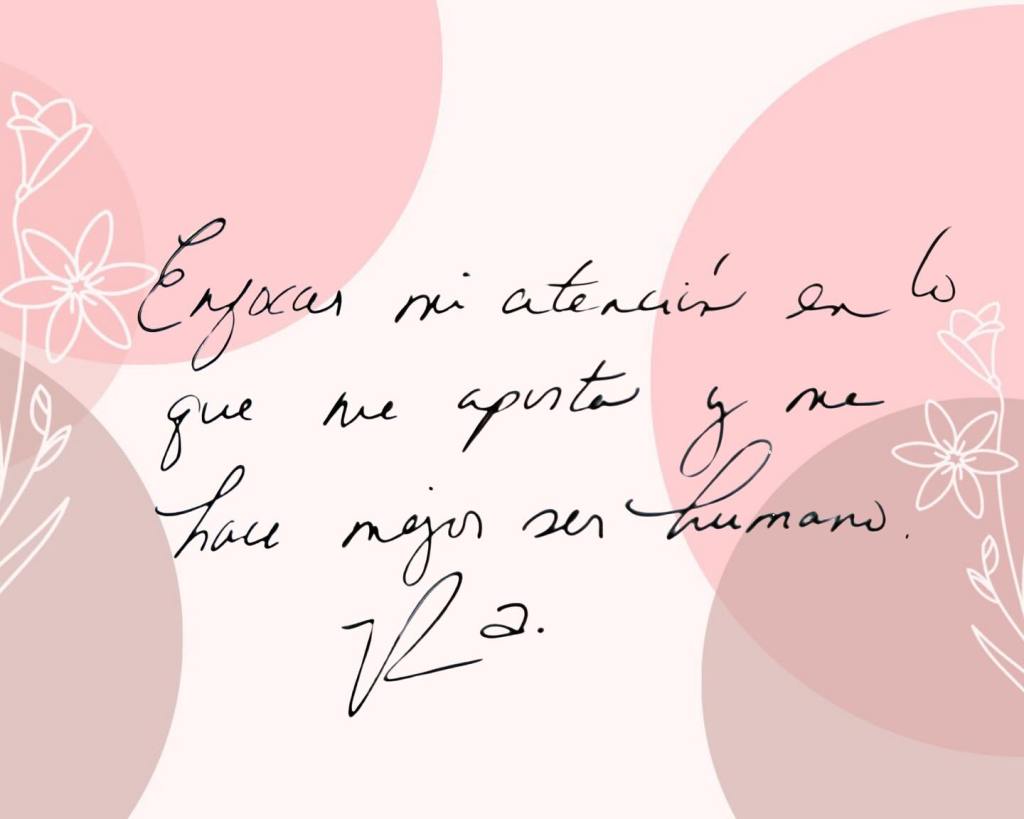 Enfocar mi atención en lo
que me aporta y me
hace mejor ser humano.
Ra.